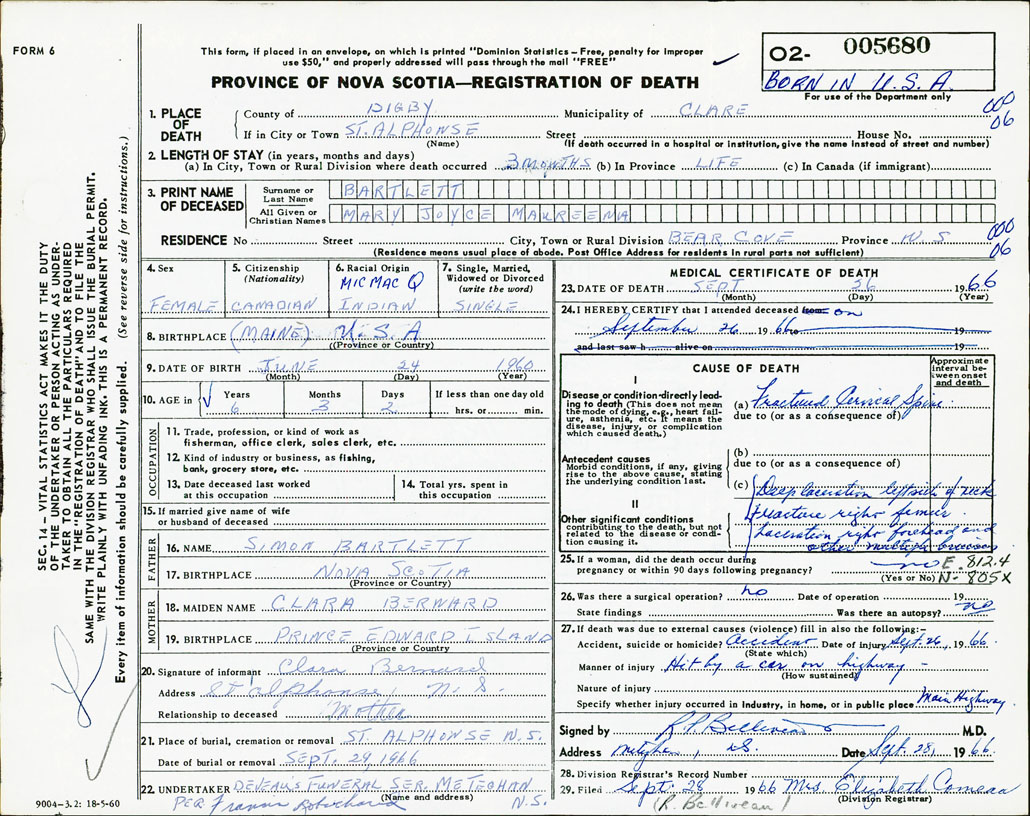 FORM 6
This form, if placed in an envelope, on which is printed "Dominion Statistics – Free, penalty for improper
use $50," and properly addressed will pass through the mail "FREE"
PROVINCE OF NOVA SCOTIA—REGISTRATION OF DEATH
O2- 005680
BORN IN U.S.A.
For use of the Department only
000
06
SEC. 14– VITAL STATISTICS ACT MAKES IT THE DUTY
OF THE UNDERTAKER OR PERSON ACTING AS UNDER-
TAKER TO OBTAIN ALL THE PARTICULARS REQUIRED
IN THE "REGISTRATION OF DEATH" AND TO FILE THE
SAME WITH THE DIVISION REGISTRAR WHO SHALL ISSUE THE BURIAL PERMIT.
WRITE PLAINLY WITH UNFADING INK. THIS IS A PERMANENT RECORD.
Every item of information should be carefully supplied. (See reverse side for instructions.)
1. PLACE OF DEATH
County of DIGBY Municipality of CLARE
If in City or Town ST. ALPHONSE Street House No.
(Name) (If death occurred in a hospital or institution, give the name instead of street and number)
2. LENGTH OF STAY (in years, months and days)
(a) In City, Town or Rural Division where death occurred 3 MONTHS (b) In Province LIFE (c) In Canada (if immigrant)
3. PRINT NAME OF DECEASED
Surname or Last Name BARTLETT
All Given or Christian Names MARY JOYCE MAUREENA
RESIDENCE No Street City, Town or Rural Division BEAR COVE Province N.S
000
06
(Residence means usual place of abode. Post Office Address for residents in rural parts not sufficient)
4. Sex FEMALE
5. Citizenship (Nationality) CANADIAN
6. Racial Origin MICMAC Q INDIAN
7. Single, Married, Widowed or Divorced (write the word) SINGLE
8. BIRTHPLACE (MAINE) U.S.A
(Province or Country)
9. DATE OF BIRTH JUNE 24 1960
(Month) (Day) (Year)
10. AGE in Years 6 Months 3 Days 2 If less than one day old hrs. or min.
OCCUPATION
11. Trade, profession, or kind of work as
fisherman, office clerk, sales clerk, etc.
12. Kind of industry or business, as fishing,
bank, grocery store, etc.
13. Date deceased last worked
at this occupation
14. Total yrs. spent in
this occupation
15. If married give name of wife
or husband of deceased
FATHER
16. NAME SIMON BARTLETT
17. BIRTHPLACE NOVA SCOTIA
(Province or Country)
MOTHER
18. MAIDEN NAME CLARA BERNARD
19. BIRTHPLACE PRINCE EDWARD ISLAND
(Province or Country)
20. Signature of informant Clara Bernard
Address St Alphonse, N.S.
Relationship to deceased Mother
21. Place of burial, cremation or removal ST. ALPHONSE N.S.
Date of burial or removal SEPT. 29, 1966
22. UNDERTAKER DEVEAU'S FUNERAL SER. METEGHAN
(Name and address) N.S.
PER
9004–3.2: 18-5-60
MEDICAL CERTIFICATE OF DEATH
23. DATE OF DEATH SEPT 26 1966
(Month) (Day) (Year)
24. I HEREBY CERTIFY that I attended deceased from on
September 26 1966 to 19
and last saw h alive on 19
CAUSE OF DEATH
Approximate interval between onset and death
I
Disease or condition directly lead-
ing to death (This does not mean
the mode of dying, e.g., heart fail-
ure, asthenia, etc. It means the
disease, injury, or complication
which caused death.)
(a) Fractured Cervical Spine
due to (or as a consequence of)
Antecedent causes
Morbid conditions, if any, giving
rise to the above cause, stating
the underlying condition last.
(b)
due to (or as a consequence of)
(c) Deep laceration left side of neck
II
Other significant conditions
contributing to the death, but not
related to the disease or condi-
tion causing it.
Fracture right femur
Laceration right forehead and
other multiple bruises
25. If a woman, did the death occur during
pregnancy or within 90 days following pregnancy? no
(Yes or No)
E. 812.4
N- 805X
26. Was there a surgical operation? no Date of operation 19
State findings Was there an autopsy? no
27. If death was due to external causes (violence) fill in also the following:–
Accident, suicide or homicide? Accident Date of injury Sept. 26, 1966
(State which)
Manner of injury Hit by a car on highway –
(How sustained)
Nature of injury
Specify whether injury occurred in industry, in home, or in public place Main Highway
Signed by R.P. Belliveau M.D.
Address Meteghan, N.S. Date Sept. 28, 1966
28. Division Registrar's Record Number
29. Filed Sept. 28 1966 Mrs. Elizabeth Comeau
(R. Belliveau) (Division Registrar)